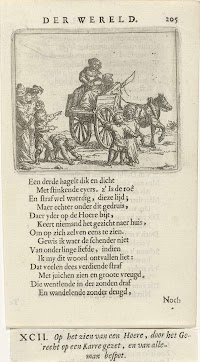 DER WERELD. 205
Een derde hagelt dik en dicht
Met stinkende eyers. z' Is de roê
En straf wel waerdig, dieze lijd;
Maer echter onder dit gedruis,
Daer yder op de Hoere bijt,
Keert niemand het gezicht naer huis,
Om op zich zelven eens te zien.
Gewis ik waer de schender niet
Van onderlinge liefde, indien
Ik my dit woord ontvallen liet:
Dat veelen dees verdiende straf
Met juichen zien en groote vreugd,
Die wenschende in der zonden draf
En wandelende zonder deugd,
Noch
XCII. Op het zien van een Hoere, door het Ge-
recht op een Karre gezet, en van alle-
man bespot.